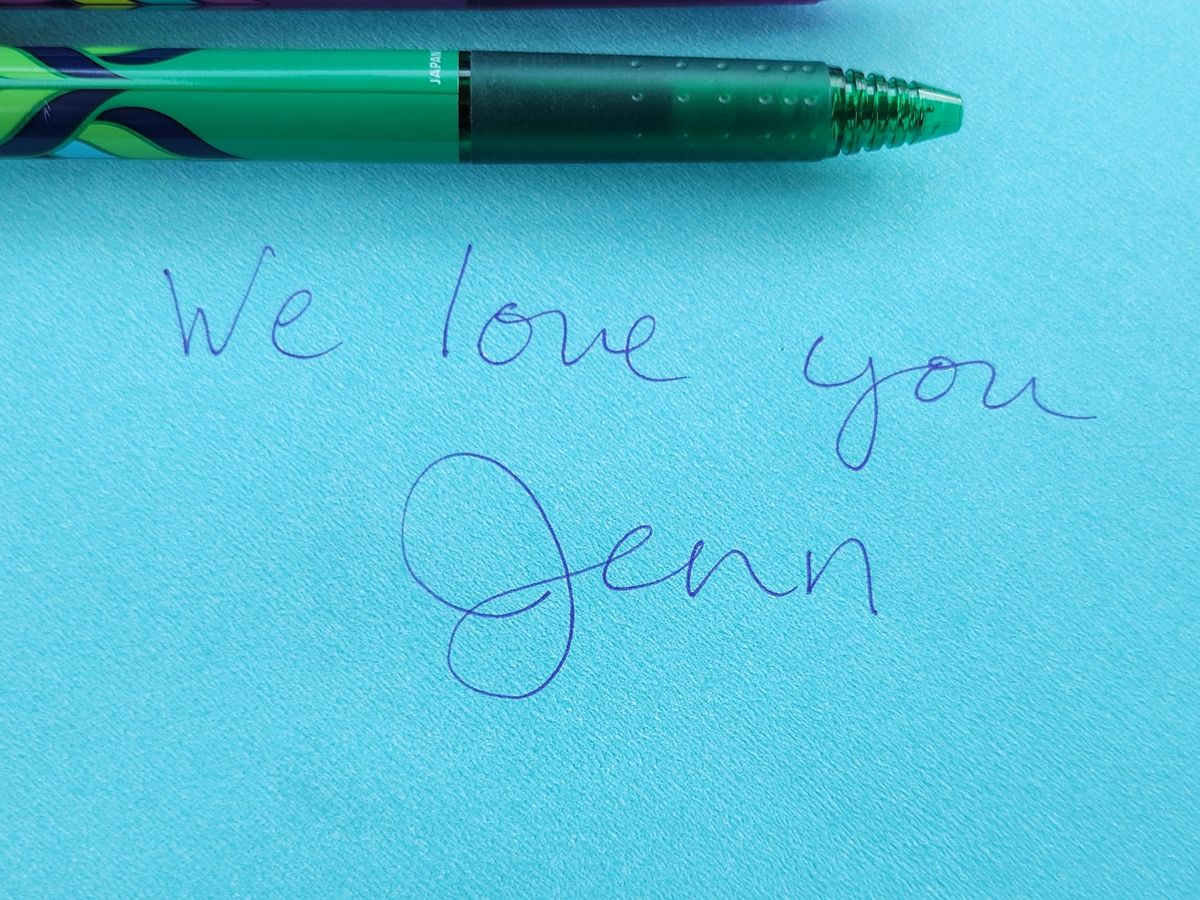 JAPAN
We love you
Jenn